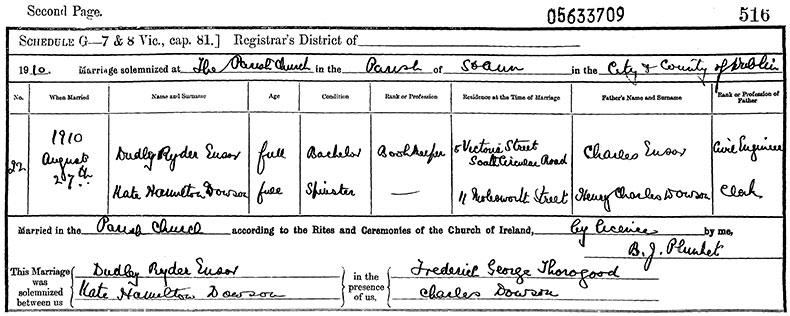 Second Page. 05633709 516
SCHEDULE G—7 & 8 Vic., cap. 81.] Registrar's District of
1910. Marriage solemnized at The Parish Church in the Parish of St Ann in the City & County of Dublin
No. When Married Name and Surname Age Condition Rank or Profession Residence at the Time of Marriage Father's Name and Surname Rank or Profession of Father
22 1910 August 27th Dudley Ryder Ensor full Bachelor Bookkeeper 5 Victoria Street South Circular Road Charles Ensor Civil Engineer
Kate Hamilton Dowson full Spinster — 11 Molesworth Street Henry Charles Dowson Clerk
Married in the Parish Church according to the Rites and Ceremonies of the Church of Ireland, by licence by me,
B. J. Plunket
This Marriage was solemnized between us { Dudley Ryder Ensor } in the presence of us, { Frederick George Thorogood
Kate Hamilton Dowson Charles Dowson